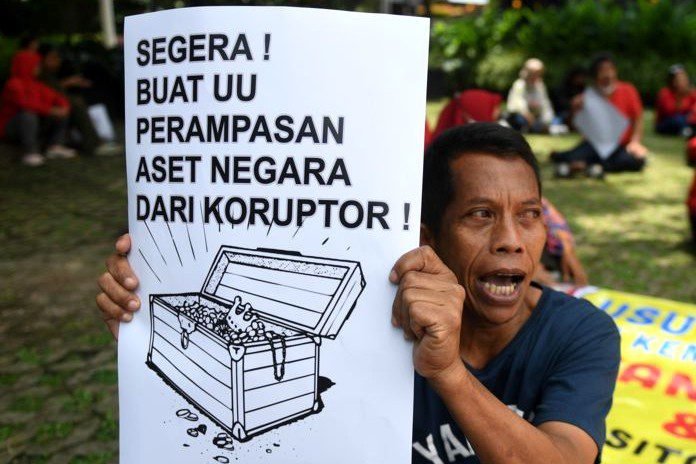 SEGERA !
BUAT UU
PERAMPASAN
ASET NEGARA
DARI KORUPTOR !
USU
KEN
AN
&
SITO
YA